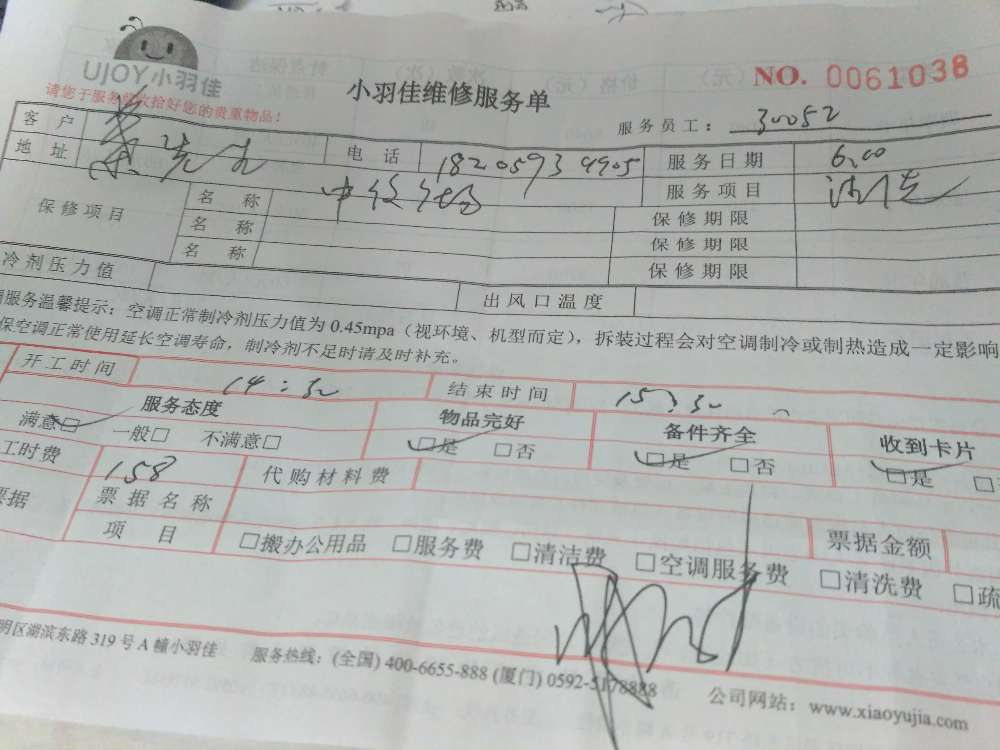 UJOY小羽佳
请您于服务前收拾好您的贵重物品！
小羽佳维修服务单
NO. 0061038
服务员工： 30052
客户 先生 电话 18205934905 服务日期
地址 服务项目
保修项目 名称 保修期限
名称 保修期限
名称 保修期限
冷剂压力值 出风口温度
服务温馨提示：空调正常制冷剂压力值为 0.45mpa（视环境、机型而定），拆装过程会对空调制冷或制热造成一定影响
保空调正常使用延长空调寿命，制冷剂不足时请及时补充。
开工时间 14：30 结束时间 15：30
服务态度 物品完好 备件齐全 收到卡片
满意□ 一般□ 不满意□ □是 □否 □是 □否 □是 □
工时费 158 代购材料费
票据 票据名称 票据金额
项目 □搬办公用品 □服务费 □清洁费 □空调服务费 □清洗费 □疏
明区湖滨东路 319 号 A 幢小羽佳 服务热线：(全国) 400-6655-888 (厦门) 0592-5178888 公司网站：www.xiaoyujia.com